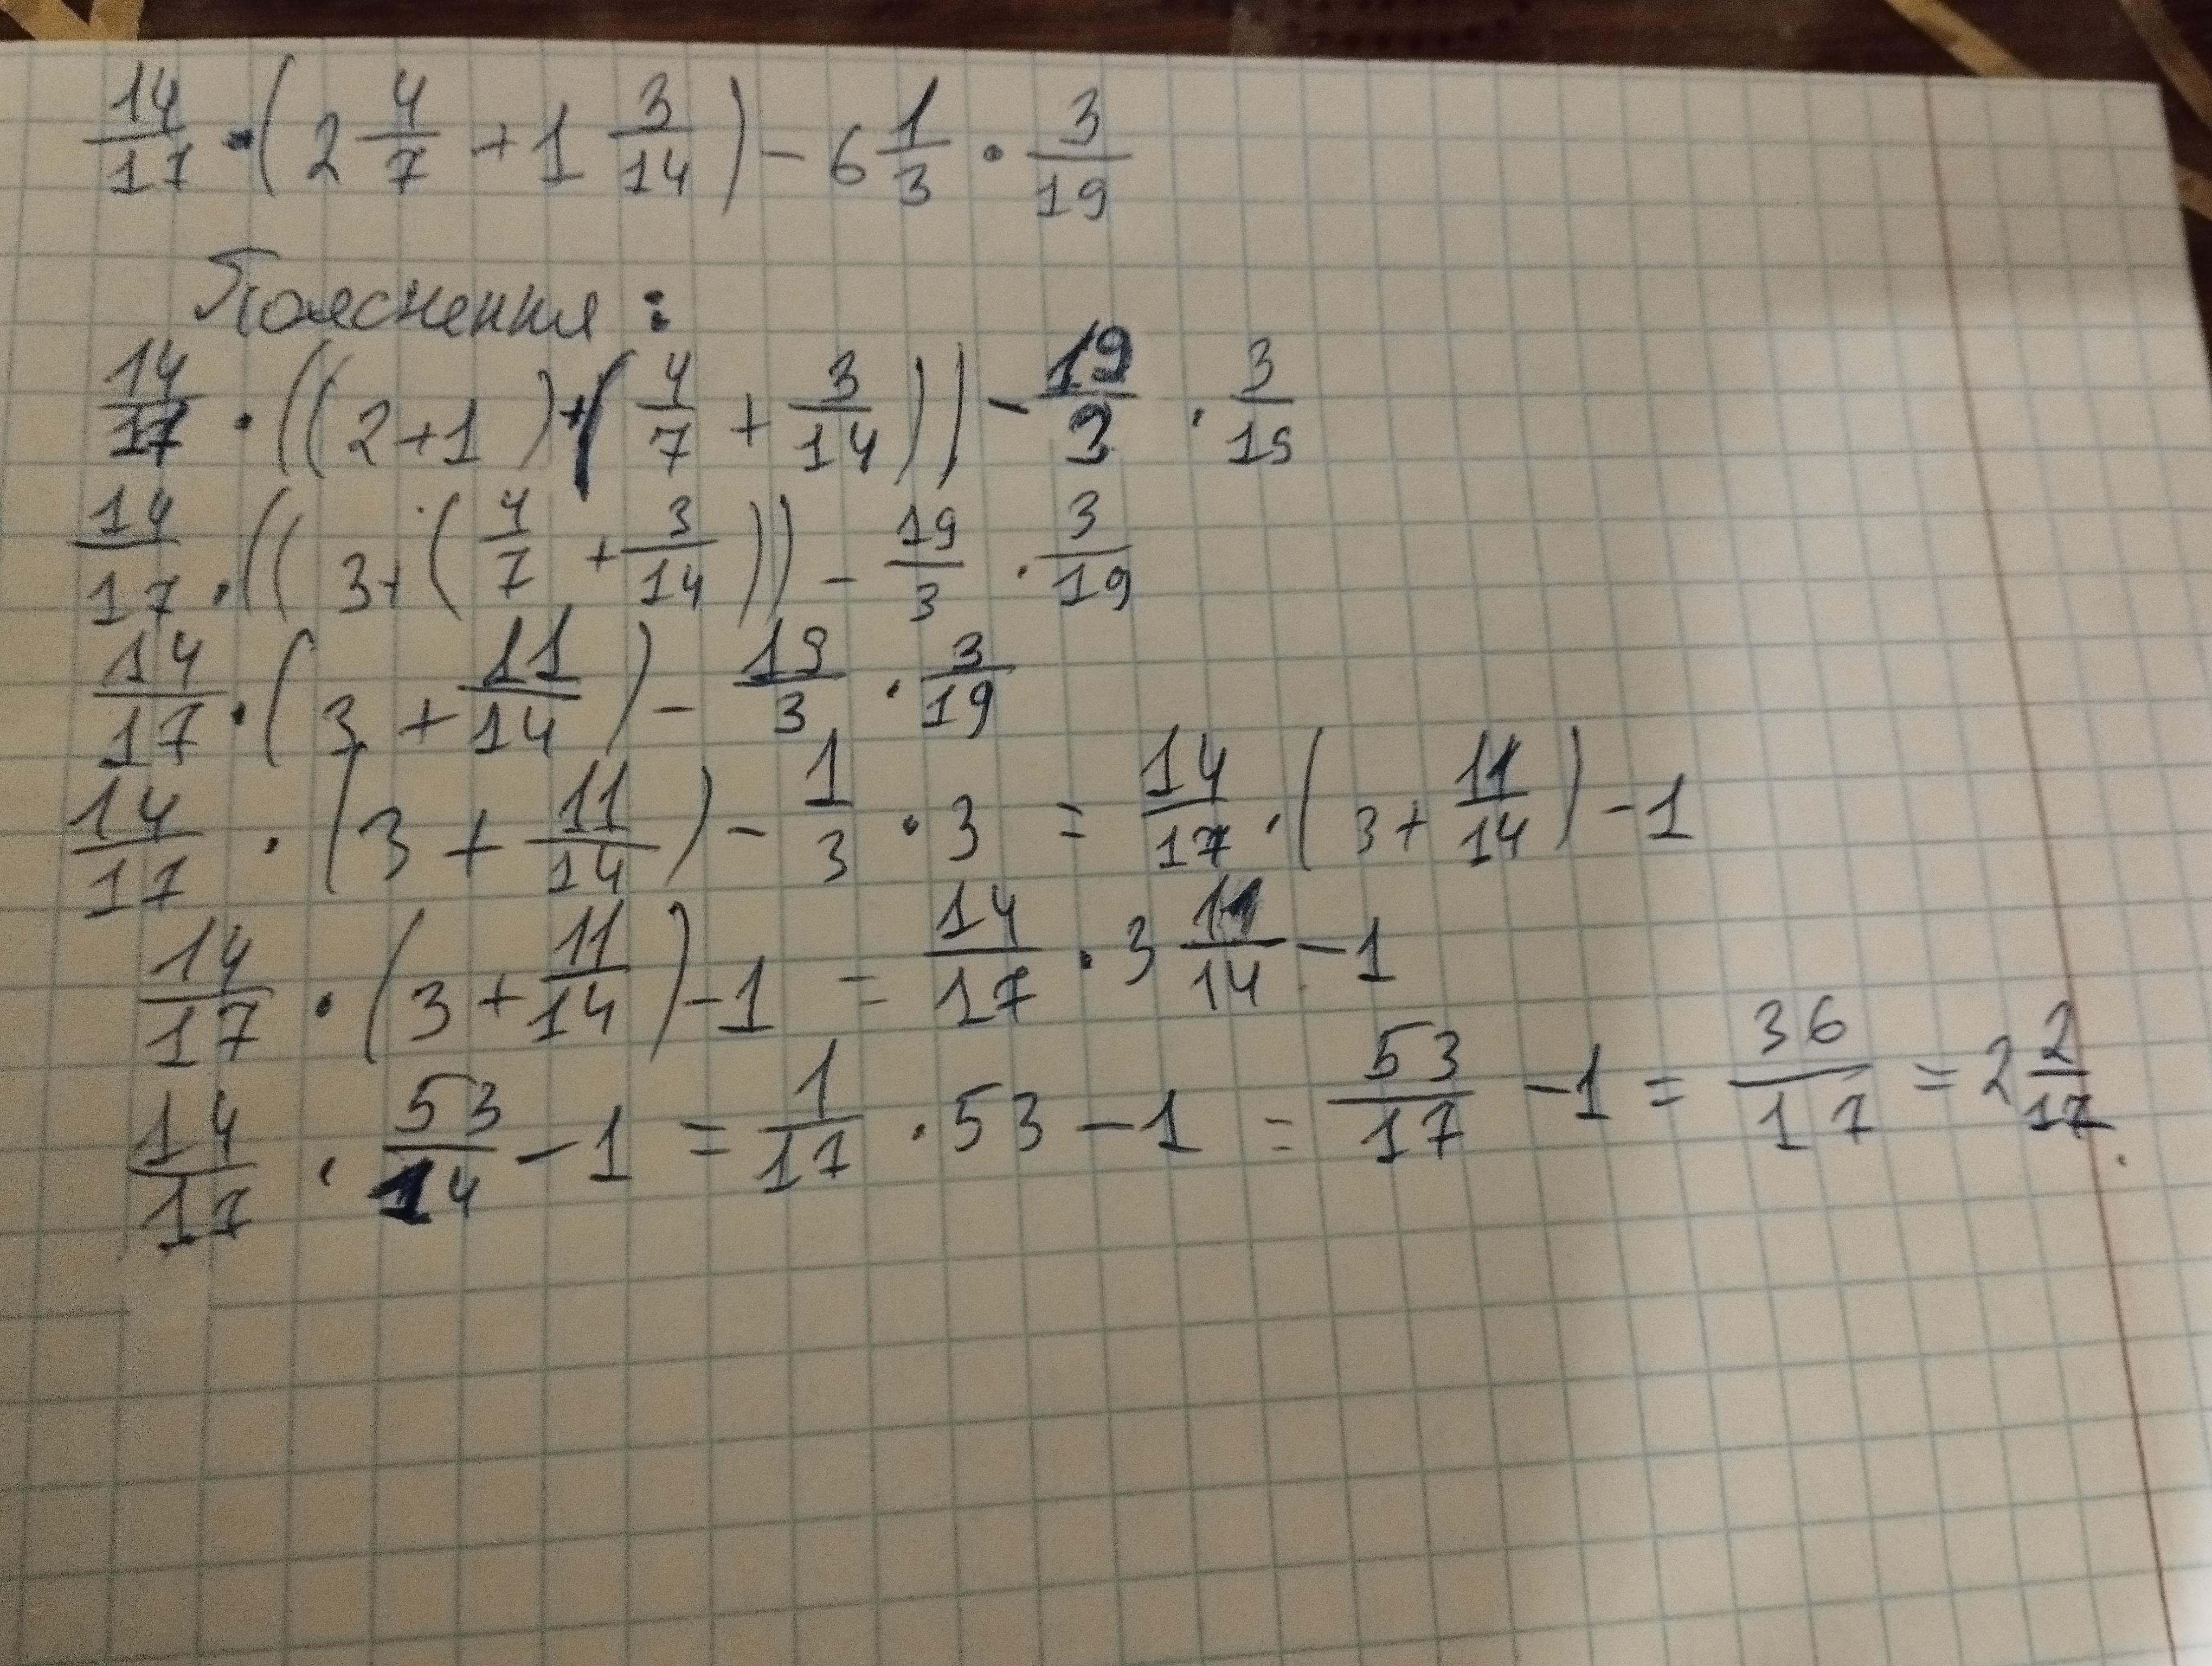 14/17 · (2 4/7 + 1 3/14) - 6 1/3 · 3/19
Пояснення:
14/17 · ((2+1) + (4/7 + 3/14)) - 19/3 · 3/19
14/17 · ((3+(4/7 + 3/14)) - 19/3 · 3/19
14/17 · (3 + 11/14) - 19/3 · 3/19
14/17 · (3 + 11/14) - 1/3 · 3 = 14/17 · (3 + 11/14) - 1
14/17 · (3 + 11/14) - 1 = 14/17 · 3 11/14 - 1
14/17 · 53/14 - 1 = 1/17 · 53 - 1 = 53/17 - 1 = 36/17 = 2 2/17.